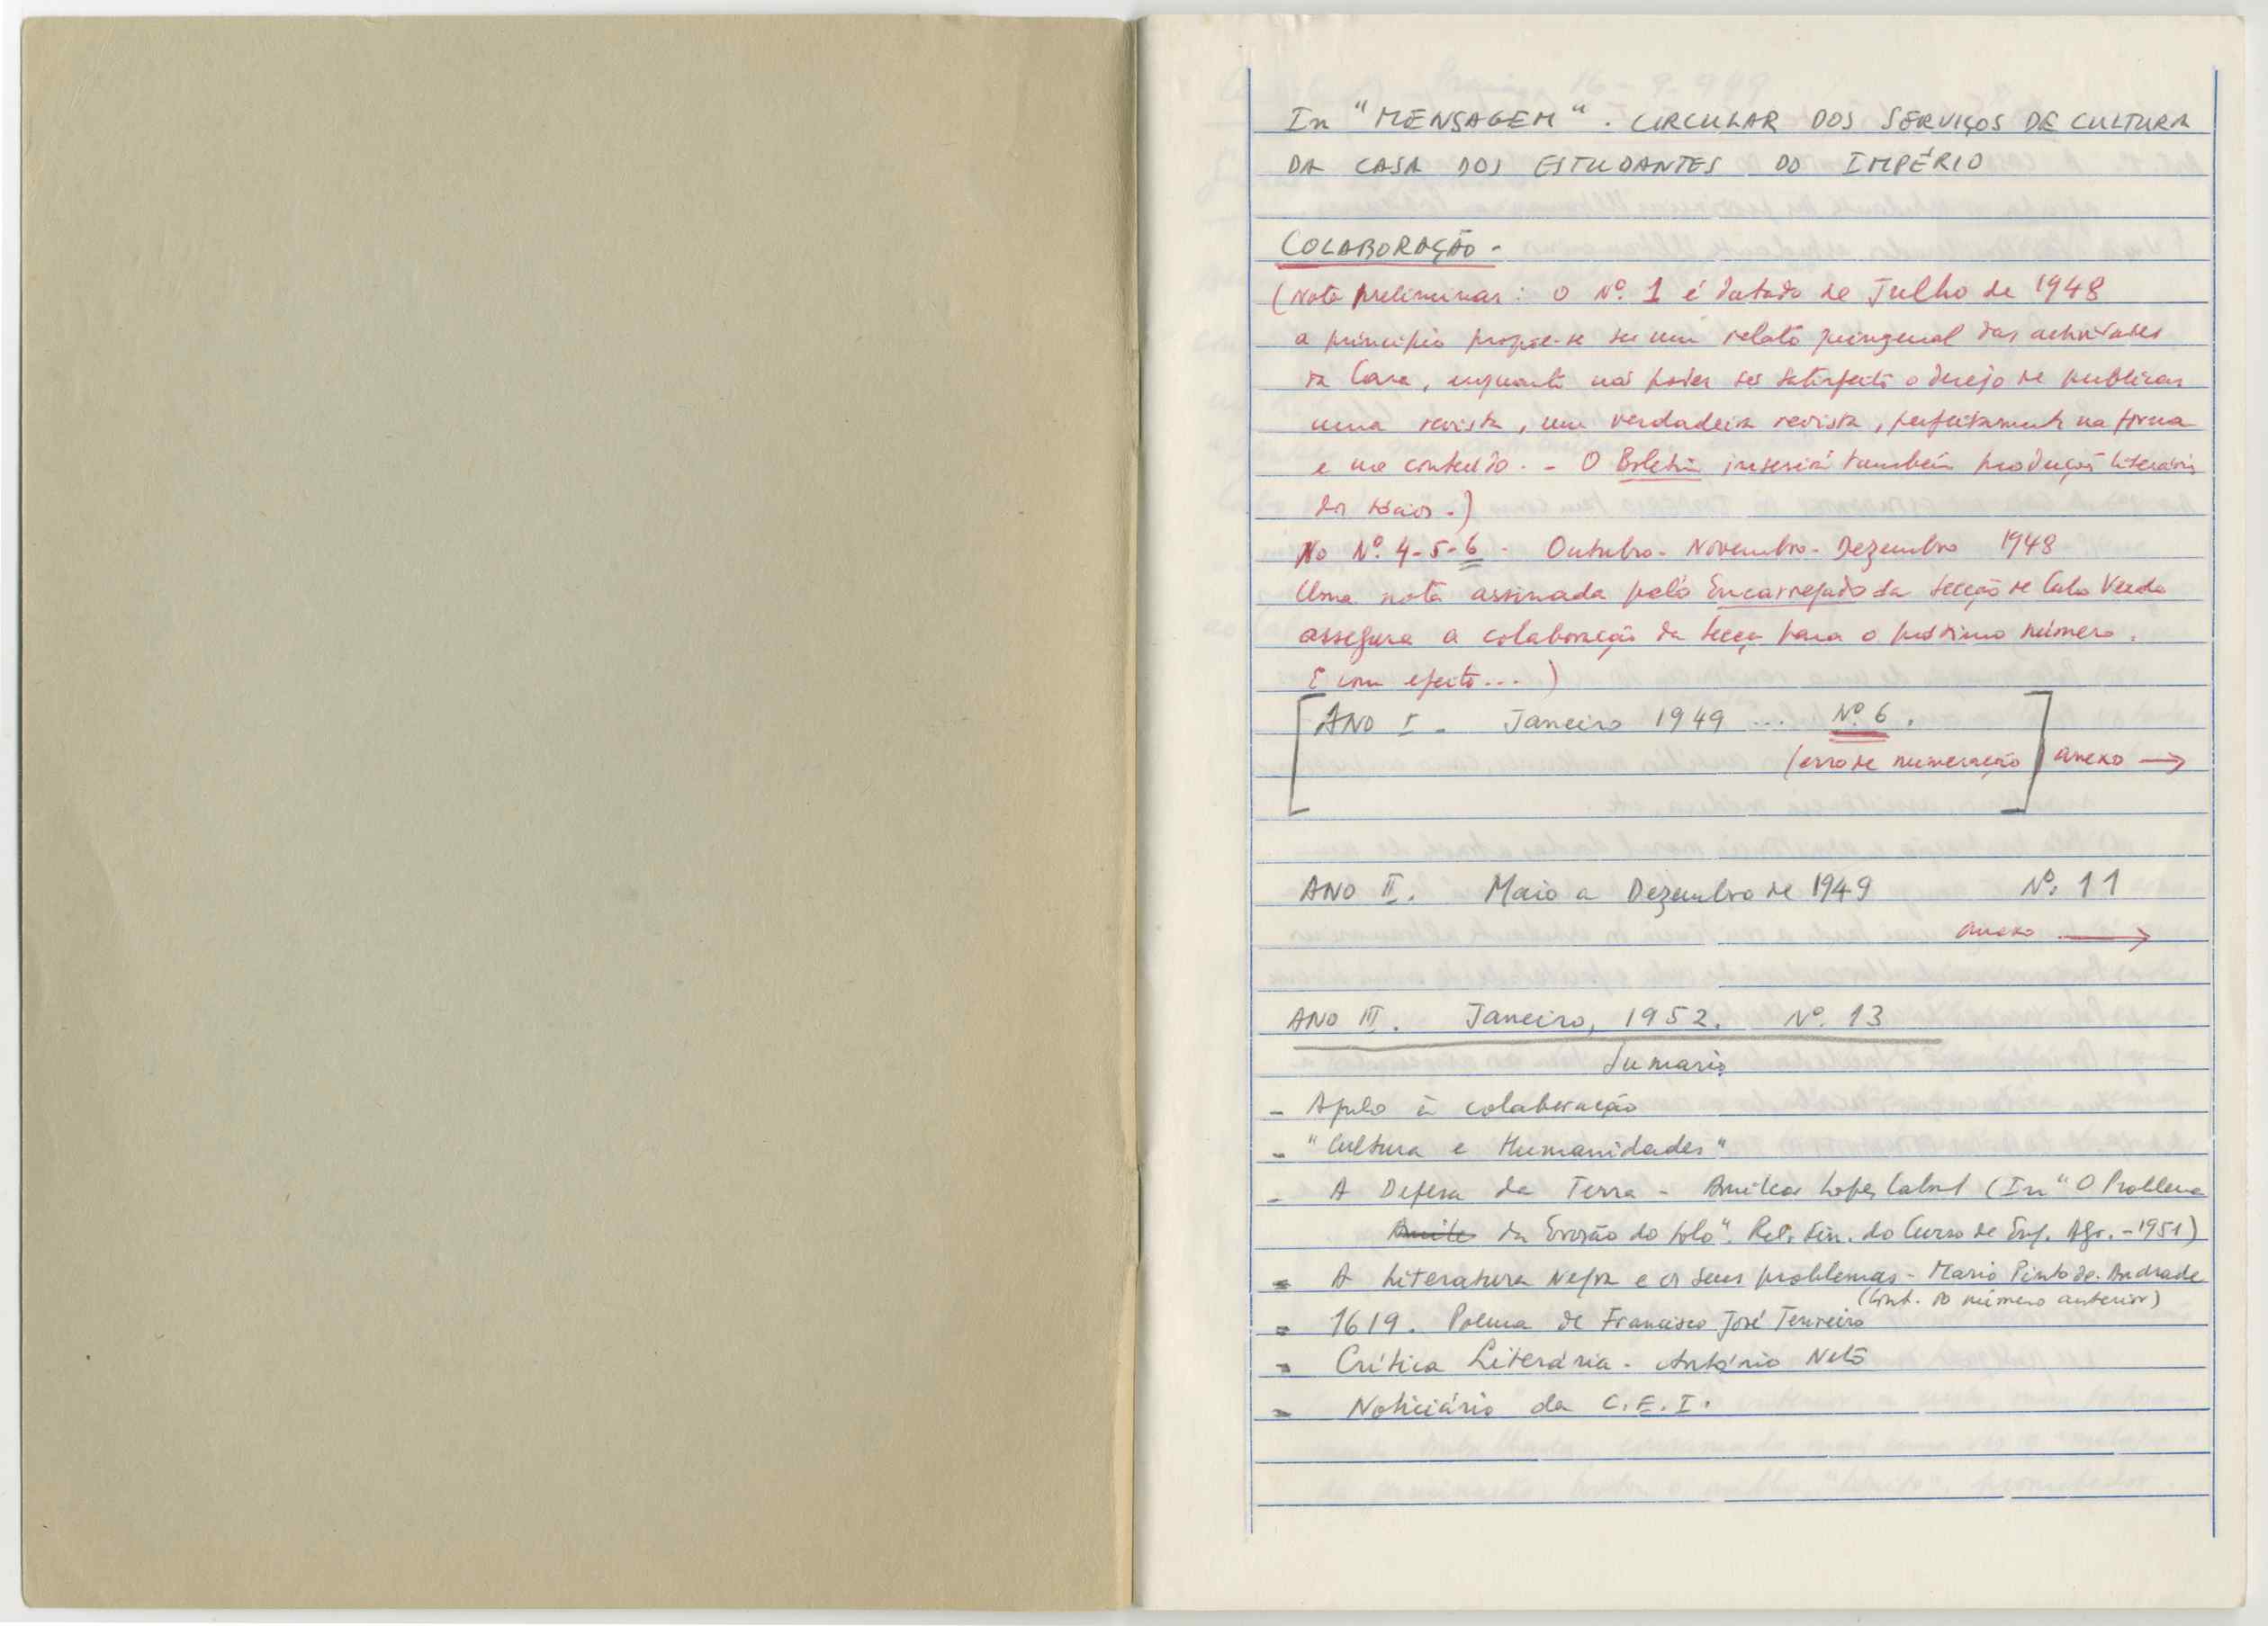 In "MENSAGEM". CIRCULAR DOS SERVIÇOS DE CULTURA
DA CASA DOS ESTUDANTES DO IMPÉRIO
COLABORAÇÃO -
(Nota preliminar: O Nº. 1 é datado de Julho de 1948
a principio propoe-se ser um relato quinzenal das actividades
da Casa, enquanto não poder ser satisfeito o desejo de publicar
uma revista, uma verdadeira revista, perfeitamente na forma
e no conteúdo. - O Boletim inserirá também produção literária
dos sócios.)
No Nº. 4-5-6 - Outubro - Novembro - Dezembro 1948
Uma nota assinada pelo Encarregado da Secção de Cabo Verde
assegura a colaboração da secção para o próximo número.
E com efeito...)
[ANO I - Janeiro 1949 ... Nº. 6.
(erro de numeração] anexo →
ANO II. Maio a Dezembro de 1949 Nº. 11
anexo →
ANO III. Janeiro, 1952. Nº. 13
Sumario
- Apelo à colaboração
- "Cultura e Humanidades"
- A Defesa da Terra - Amilcar Lopes Cabral (In "O Problema
da Erosão do Solo". Rel. Fin. do Curso de Eng. Agr. - 1951)
- A Literatura Negra e os seus problemas - Mario Pinto de Andrade
(Cont. do número anterior)
- 1619. Poema de Francisco José Tenreiro
- Crítica Literária - António Neto
- Noticiário da C.E.I.